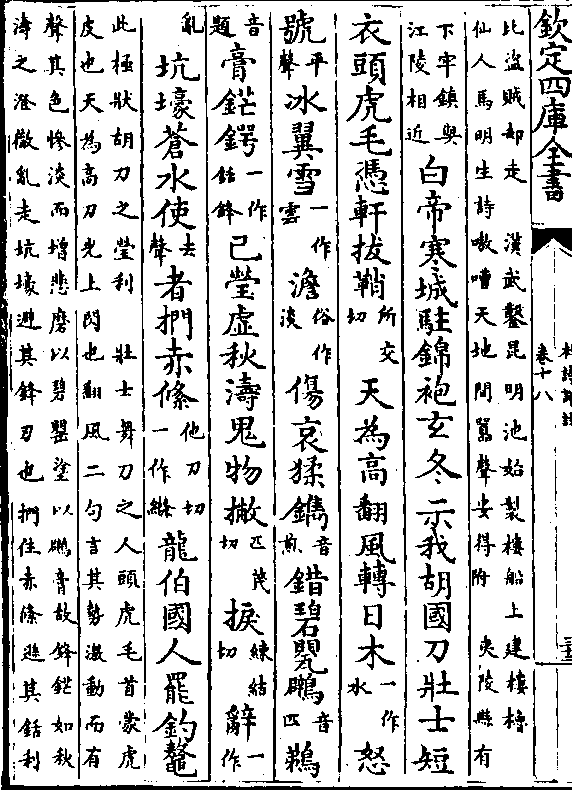 欽定四庫全書
卷十八
比盜賊却走　漢武鑿昆明池始製樓船上建樓櫓
仙人馬明生詩嗷嘈天地間嚣聲安得附　夷陵縣有
下牢鎮與
江陵相近
白帝寒城駐錦袍玄冬示我胡國刀壯士短
衣頭虎毛憑軒拔鞘所交切天為高翻風轉日木一作水怒
號平聲冰翼雪一作雲澹俗作淡傷哀猱鐫音煎錯碧甖鸊音匹鵜
音題膏鋩鍔一作銛鋒已瑩虛秋濤鬼物撇匹蔑切捩練結切辭一作
亂坑壕蒼水使去聲者捫赤絛他刀切一作縧龍伯國人罷釣鼇
此極狀胡刀之瑩利　壯士舞刀之人頭虎毛首蒙虎
皮也天為高刀光上閃也翻風二句言其勢激動而有
聲其色慘淡而增悲磨以碧甖塗以鵜膏故鋒鋩如秋
濤之澄澈亂走坑壕避其鋒刃也捫住赤絛遜其銛利